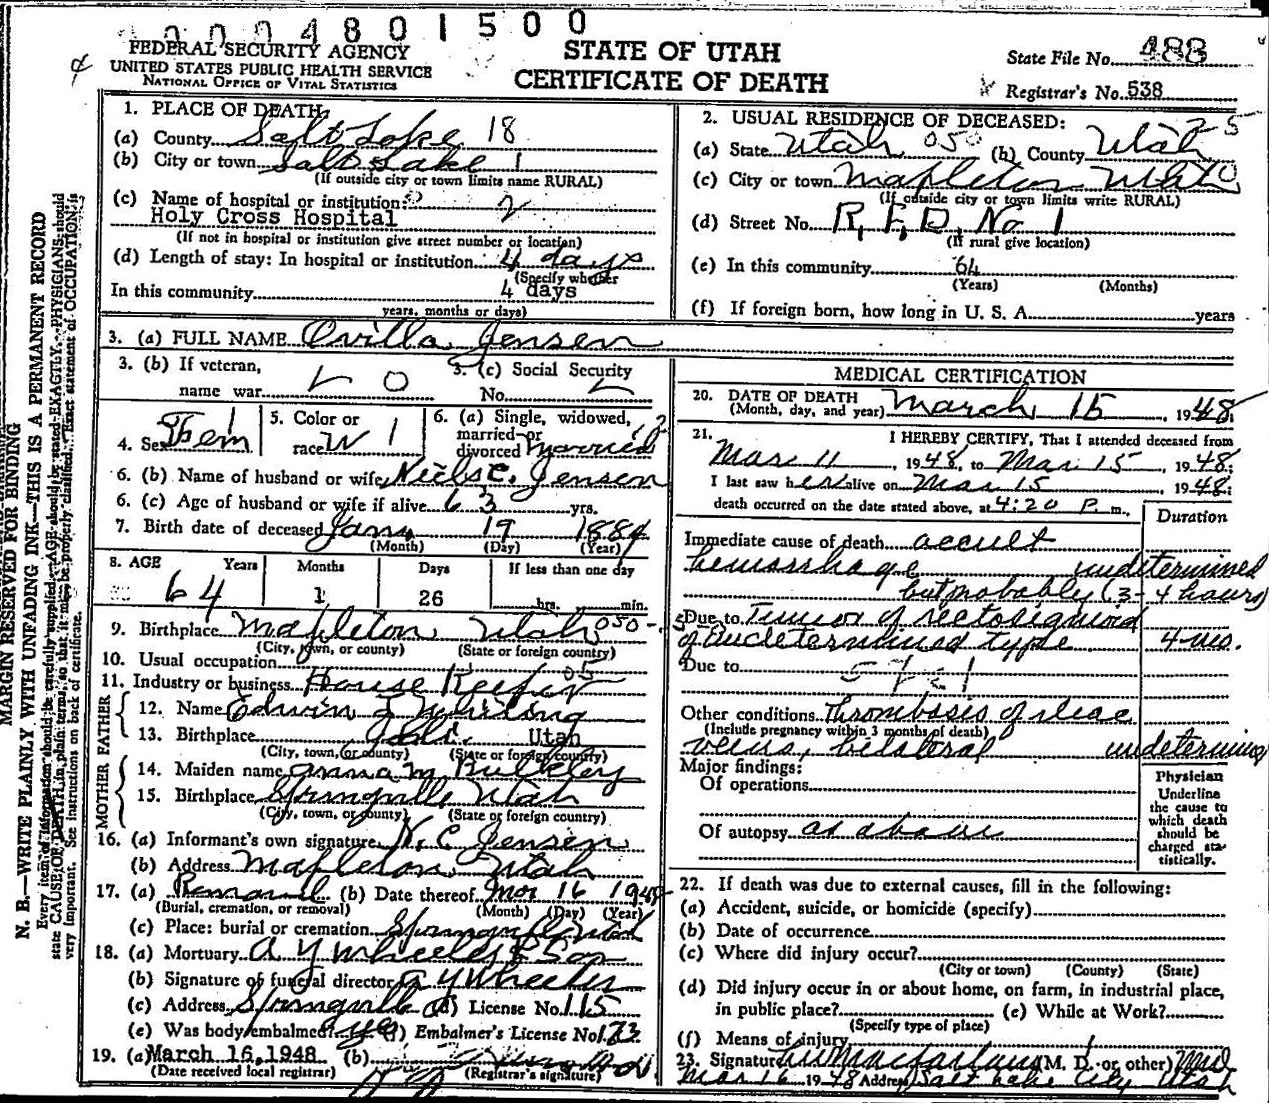 0004801500
FEDERAL SECURITY AGENCY
UNITED STATES PUBLIC HEALTH SERVICE
NATIONAL OFFICE OF VITAL STATISTICS
STATE OF UTAH
CERTIFICATE OF DEATH
State File No. 488
Registrar's No. 538
MARGIN RESERVED FOR BINDING
N. B.—WRITE PLAINLY, WITH UNFADING INK—THIS IS A PERMANENT RECORD
Every item of information should be carefully supplied. AGE should be stated EXACTLY. PHYSICIANS should
state CAUSE OF DEATH in plain terms, so that it may be properly classified. Exact statement of OCCUPATION is
very important. See instructions on back of certificate.
1. PLACE OF DEATH:
(a) County Salt Lake 18
(b) City or town Salt Lake 1
(If outside city or town limits name RURAL)
(c) Name of hospital or institution: 2
Holy Cross Hospital
(If not in hospital or institution give street number or location)
(d) Length of stay: In hospital or institution 4 days
(Specify whether
In this community 4 days
years, months or days)
2. USUAL RESIDENCE OF DECEASED: 25
(a) State Utah 050 (b) County Utah
(c) City or town Mapleton Utah 0
(If outside city or town limits write RURAL)
(d) Street No. R. F. D. No 1
(If rural give location)
(e) In this community 64
(Years) (Months)
(f) If foreign born, how long in U. S. A. years
3. (a) FULL NAME Ovilla Jensen
3. (b) If veteran,
name war 0
3. (c) Social Security
No.
4. Sex Fem 1
5. Color or
race W 1
6. (a) Single, widowed,
married or
divorced Married 2
6. (b) Name of husband or wife Niels C. Jensen
6. (c) Age of husband or wife if alive 63 yrs.
7. Birth date of deceased Jan. 19 1884
(Month) (Day) (Year)
8. AGE Years Months Days If less than one day
64 1 26 hrs. min.
9. Birthplace Mapleton Utah 050
(City, town, or county) (State or foreign country)
10. Usual occupation 05
11. Industry or business House Keeper
FATHER
12. Name Edwin J Whiting
13. Birthplace Utah
(City, town, or county) (State or foreign country)
MOTHER
14. Maiden name Anna M Bulkley
15. Birthplace Springville Utah
(City, town, or county) (State or foreign country)
16. (a) Informant's own signature N. C. Jensen
(b) Address Mapleton, Utah
17. (a) Removal (b) Date thereof Mar 16 1948
(Burial, cremation, or removal) (Month) (Day) (Year)
(c) Place: burial or cremation Springville Utah
18. (a) Mortuary A Y Wheeler & Son
(b) Signature of funeral director A Y Wheeler
(c) Address Springville (d) License No. 115
(e) Was body embalmed? yes (f) Embalmer's License No. 173
19. (a) March 16, 1948 (b)
(Date received local registrar) (Registrar's signature)
MEDICAL CERTIFICATION
20. DATE OF DEATH
(Month, day, and year) March 15, 1948
21. I HEREBY CERTIFY, That I attended deceased from
Mar 11, 1948, to Mar 15, 1948;
I last saw her alive on Mar 15, 1948;
death occurred on the date stated above, at 4:20 P. m.,
Duration
Immediate cause of death occult
hemorrhage undetermined
but probably (3-4 hours)
Due to Tumor of rectosigmoid
of undetermined type 4 mo.
Due to
Other conditions Thrombosis of iliac
(Include pregnancy within 3 months of death)
veins, bilateral undetermined
Major findings:
Of operations
Of autopsy as above
Physician
Underline
the cause to
which death
should be
charged sta-
tistically.
22. If death was due to external causes, fill in the following:
(a) Accident, suicide, or homicide (specify)
(b) Date of occurrence
(c) Where did injury occur?
(City or town) (County) (State)
(d) Did injury occur in or about home, on farm, in industrial place,
in public place? (e) While at Work?
(Specify type of place)
(f) Means of injury
23. Signature Macfarlane (M. D. or other) MD
Mar 16 1948 Address Salt Lake City, Utah